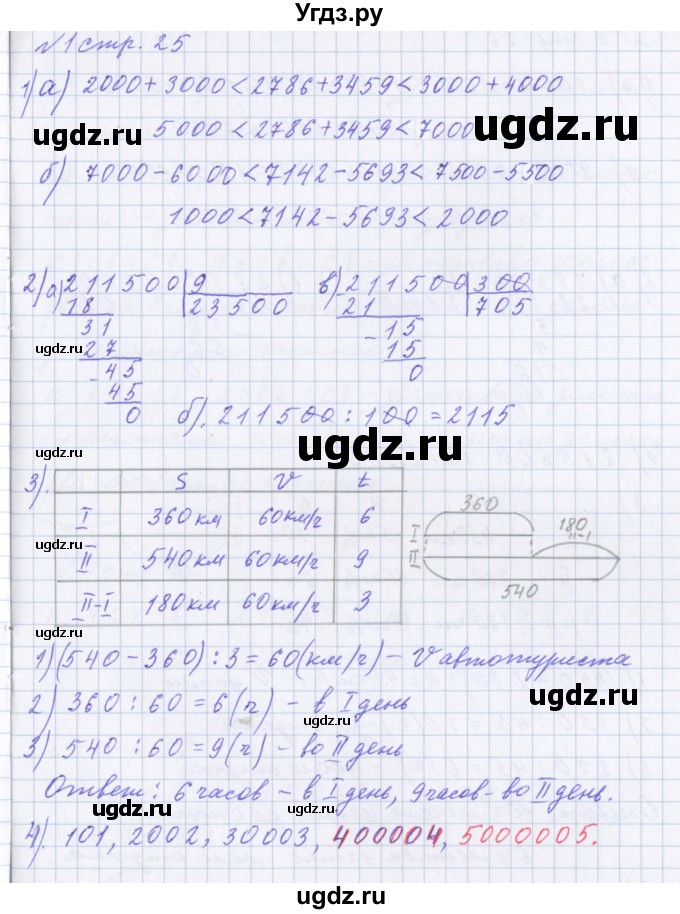 Угдз.ру
№1 стр. 25
1) а) 2000 + 3000 < 2786 + 3459 < 3000 + 4000
5000 < 2786 + 3459 < 7000
ugdz.ru ugdz.ru
б) 7000 - 6000 < 7142 - 5693 < 7500 - 5500
1000 < 7142 - 5693 < 2000
ugdz.ru
2) а) 211500 | 9 в) 211500 | 300
18 23500 21 705
31 - 15
ugdz.ru 27 15
- 45 0
45
0 б). 211500 : 100 = 2115
ugdz.ru
3). S V t
I 360 км 60 км/ч 6
II 540 км 60 км/ч 9
II-I 180 км 60 км/ч 3
360
I 180
II II-I
540
ugdz.ru
1) (540 - 360) : 3 = 60 (км/ч) - V автотуриста
2) 360 : 60 = 6 (ч) - в I день
ugdz.ru
3) 540 : 60 = 9 (ч) - во II день
ugdz.ru
Ответ: 6 часов - в I день, 9 часов - во II день.
ugdz.ru
4). 101, 2002, 30003, 400004, 5000005.
ugdz.ru
ugdz.ru